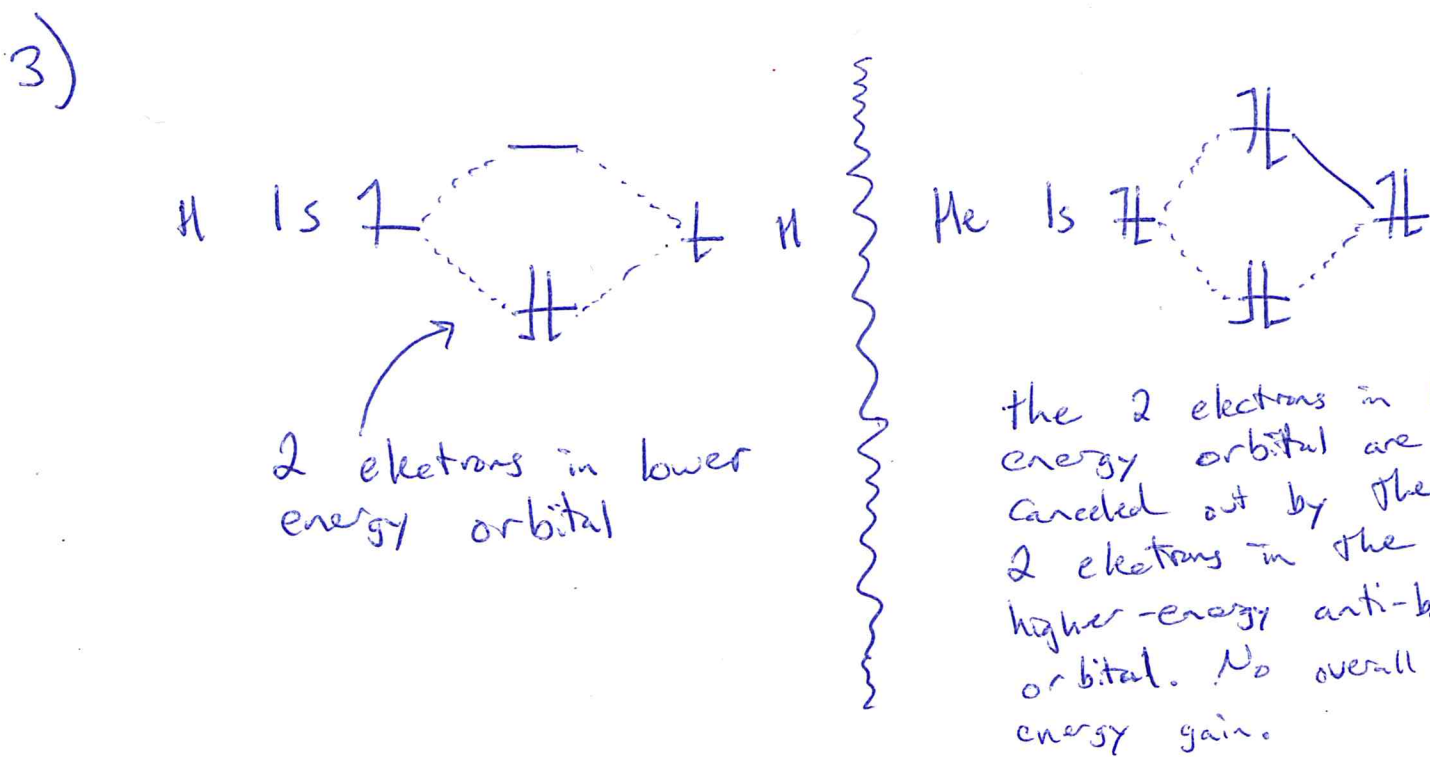 3)
H 1s H
He 1s
2 electrons in lower
energy orbital
the 2 electrons in
energy orbital are
canceled out by the
2 electrons in the
higher-energy anti-b
orbital. No overall
energy gain.